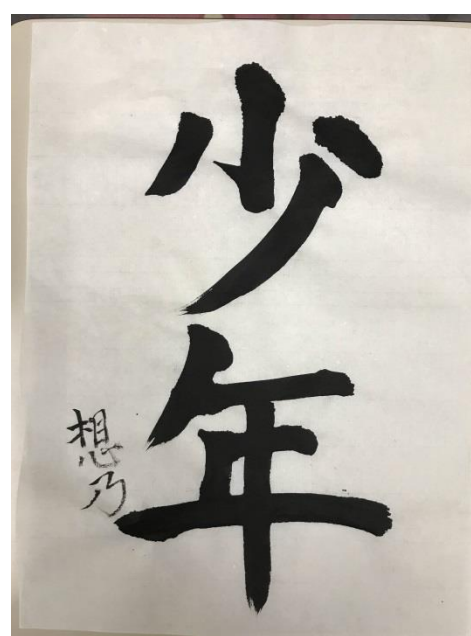 少年
想乃